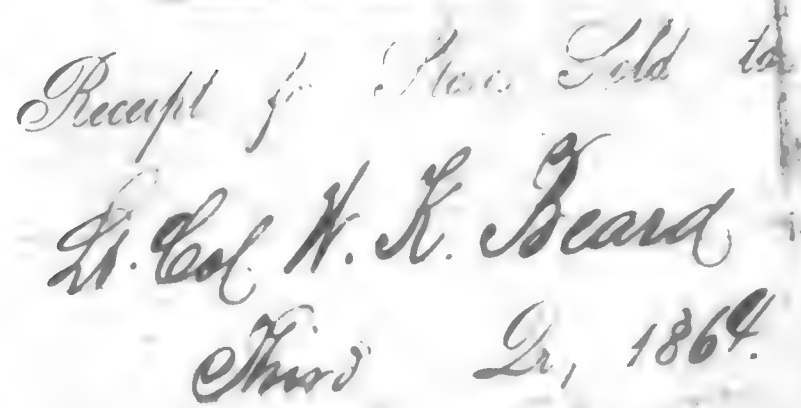 Receipt for Stores Sold to
Lt. Col. W. K. Beard
Third Qr, 1864.